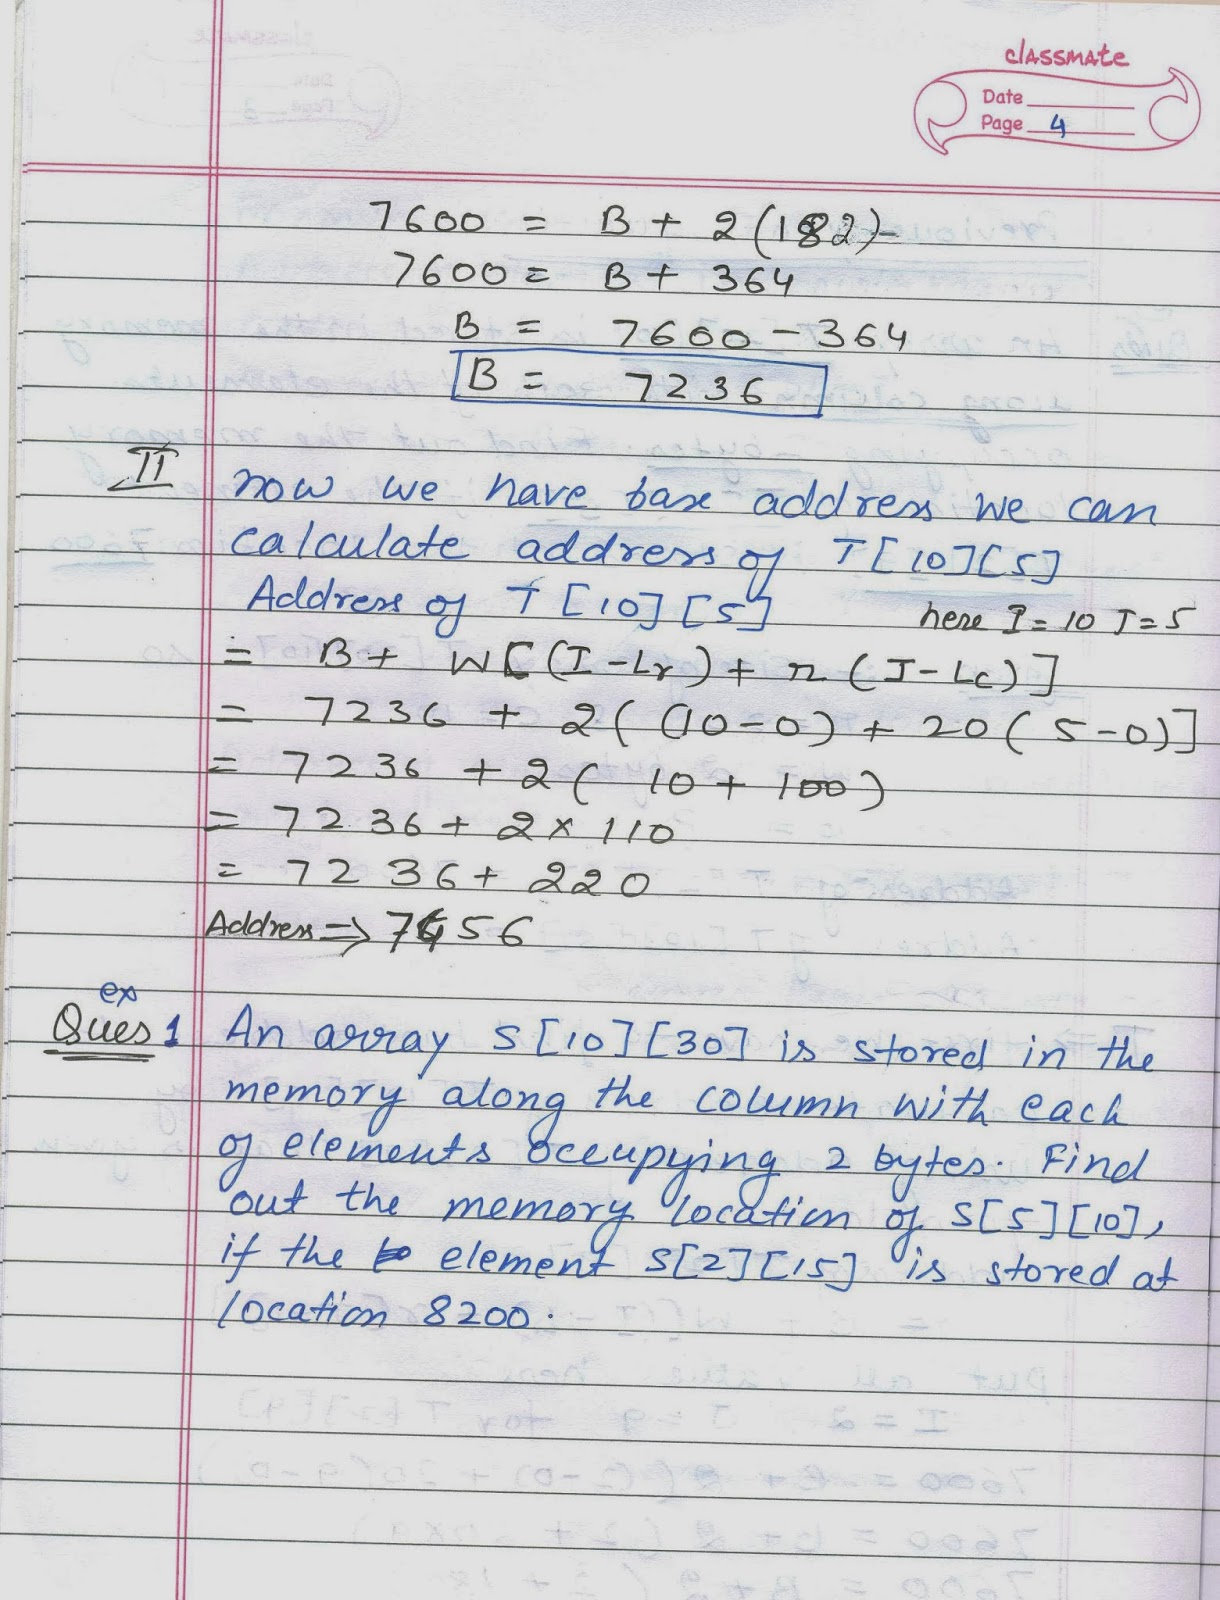 classmate
Date
Page 4
7600 = B + 2(182)
7600 = B + 364
B = 7600 - 364
B = 7236
II now we have base address we can
calculate address of T[10][5]
Address of T[10][5] here I=10 J=5
= B + W[(I-Lr) + n(J-Lc)]
= 7236 + 2((10-0) + 20(5-0)]
= 7236 + 2(10 + 100)
= 7236 + 2×110
= 7236 + 220
Address ⇒ 7456
ex
Ques 1 An array S[10][30] is stored in the
memory along the column with each
of elements occupying 2 bytes. Find
out the memory location of S[5][10],
if the element S[2][15] is stored at
location 8200.